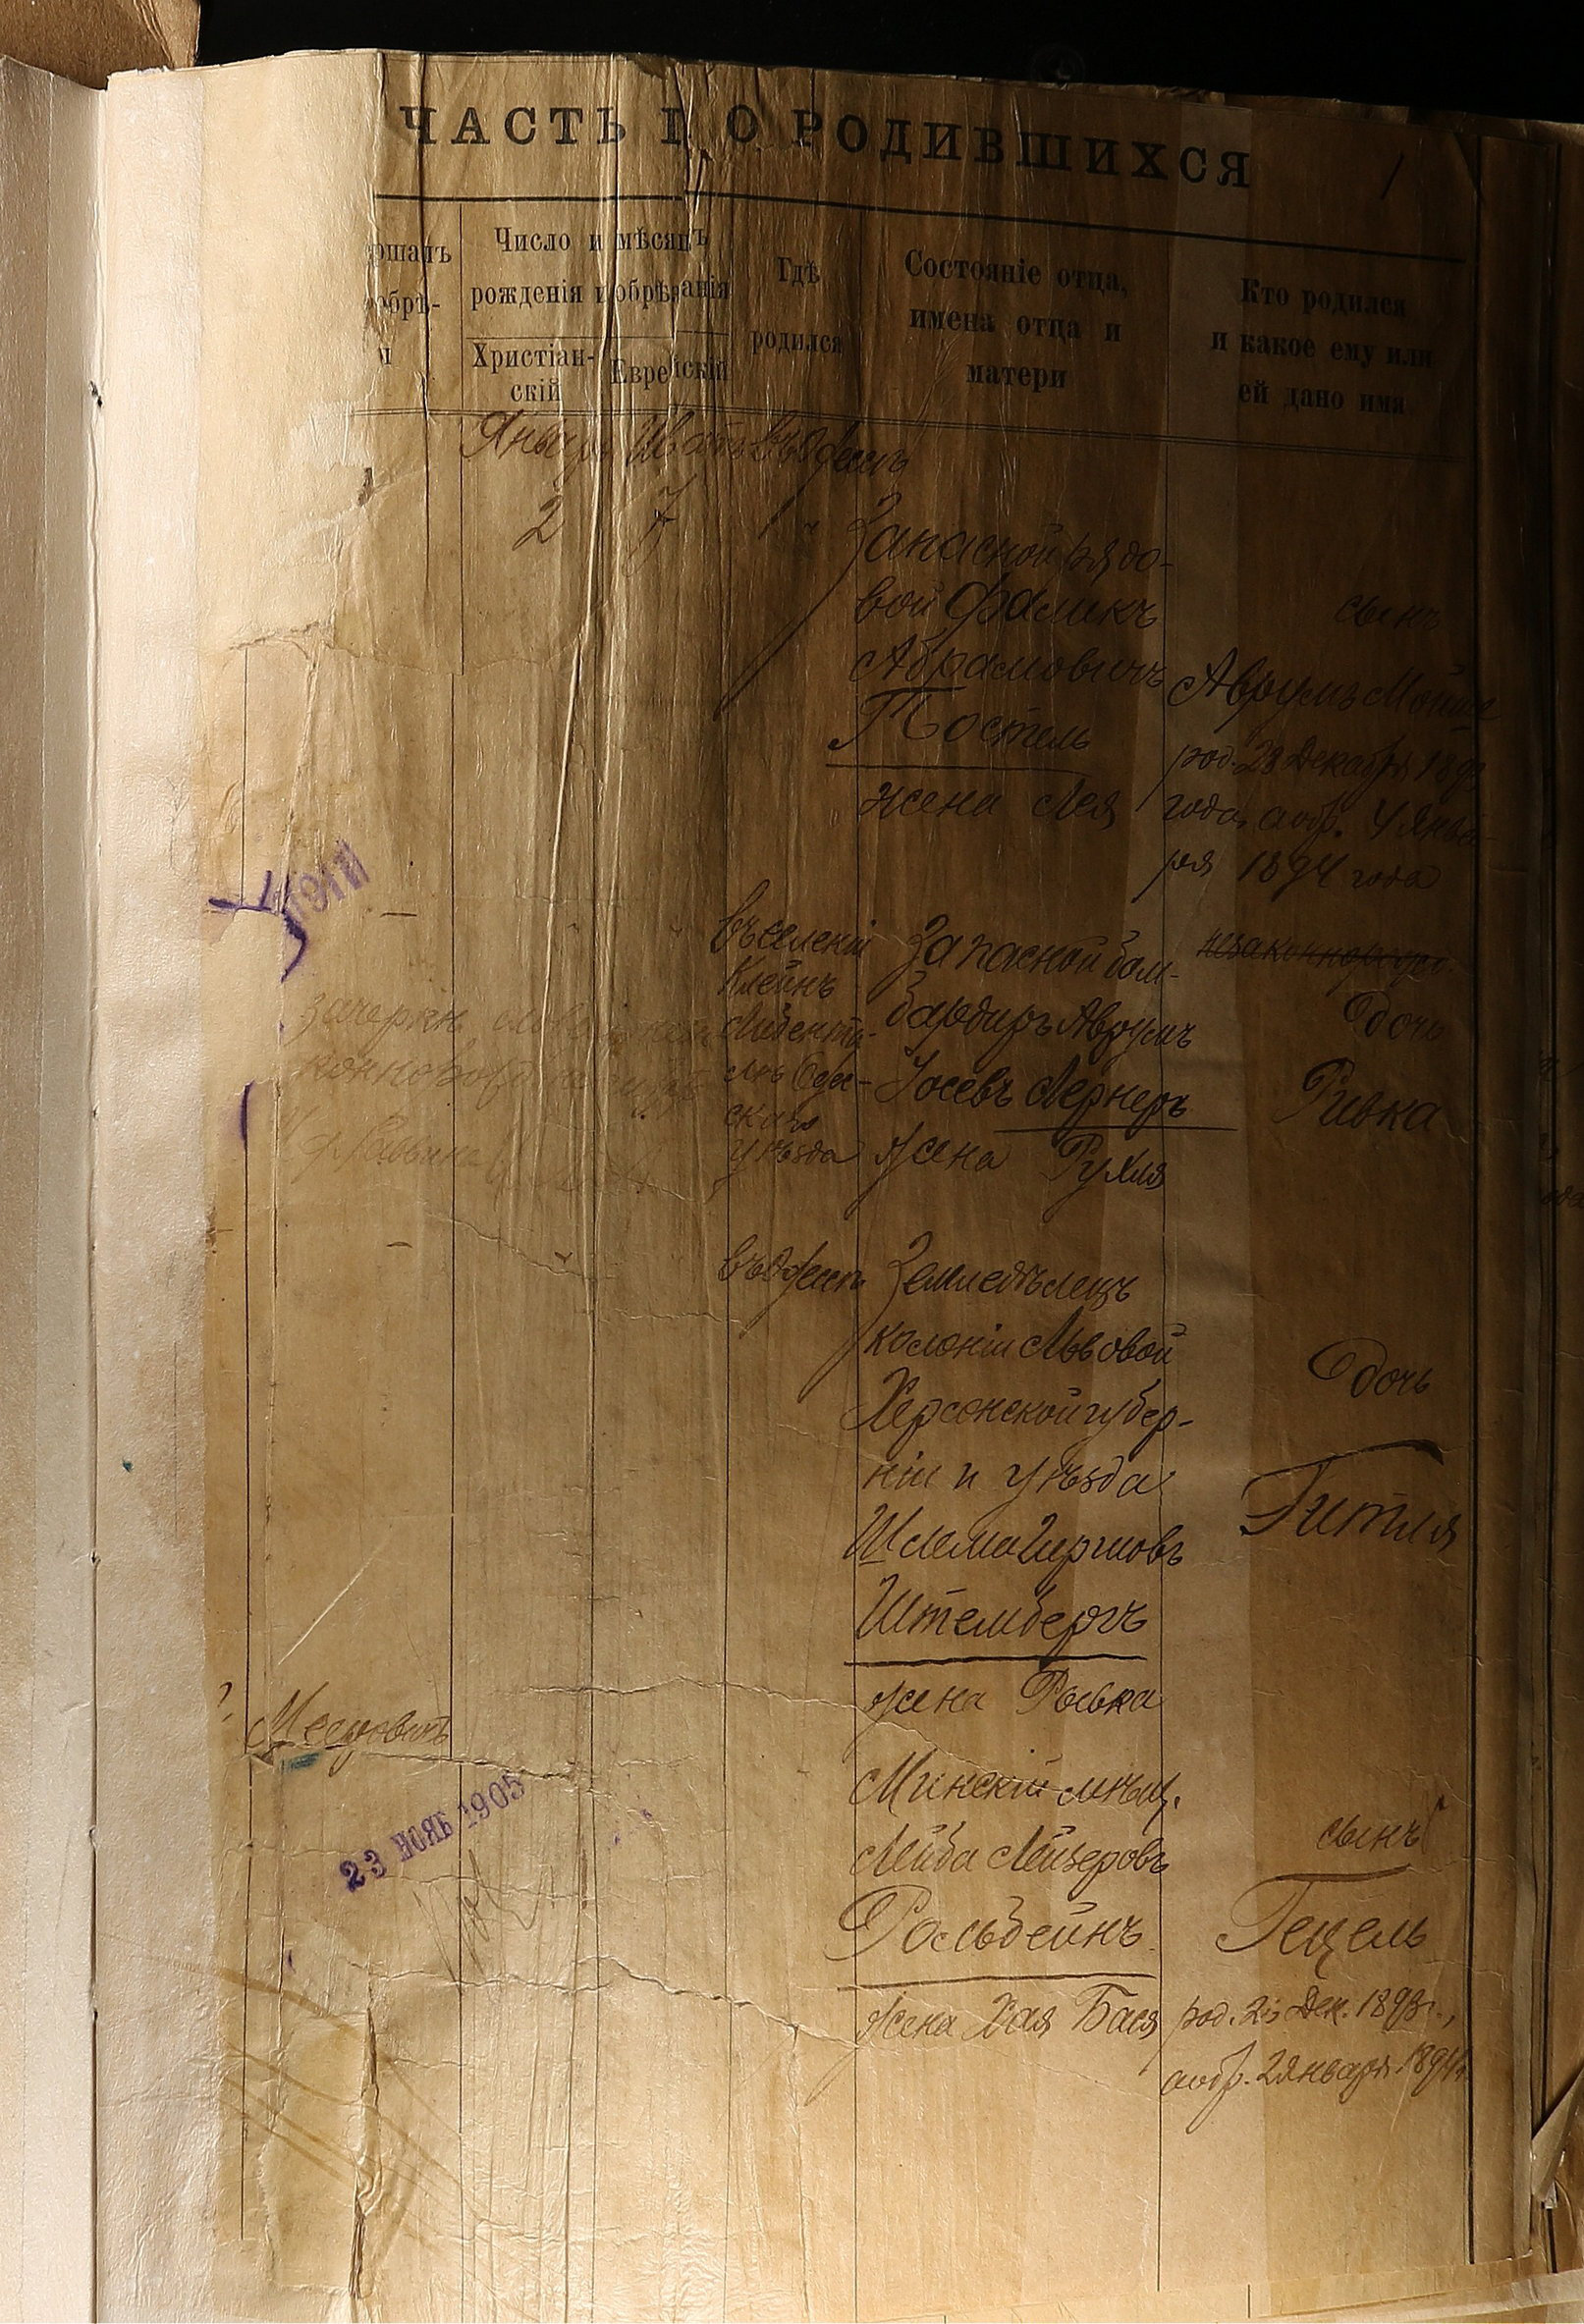 ЧАСТЬ I. О РОДИВШИХСЯ
1
Число и мѣсяцъ
рожденія и обрѣзанія
Христіан-
скій
Еврейскій
Гдѣ
родился
Состояніе отца,
имена отца и
матери
Кто родился
и какое ему или
ей дано имя
Январь Шватъ въ Одессѣ
2 7
Запасной рядо-
вой Фаликъ
Абрамовичъ
Постель
жена Лея
сынъ
Аврумъ Мойше
род. 28 Декабря 1893
года, а обр. 4 Янва-
ря 1894 года
въ селеніи
Клейнъ
Либента-
лѣ Одес-
скаго
уѣзда
Запасной бом-
бардиръ Аврумъ
Іосевъ Лернеръ
жена Рухля
незаконнорожд.
дочь
Ривка
зачеркн. слово
въ Одессѣ
Земледѣлецъ
колоніи Львовой
Херсонской губер-
ніи и уѣзда
Шлема Гершовъ
Штембергъ
жена Рывка
дочь
Гитля
23 НОЯБ 1905
Минскій мѣщ.
Лейба Лейзеровъ
Рольбейнъ
жена Хая Бася
сынъ
Гецель
род. 26 Дек. 1893 г.,
а обр. 2 Января 1894 г.